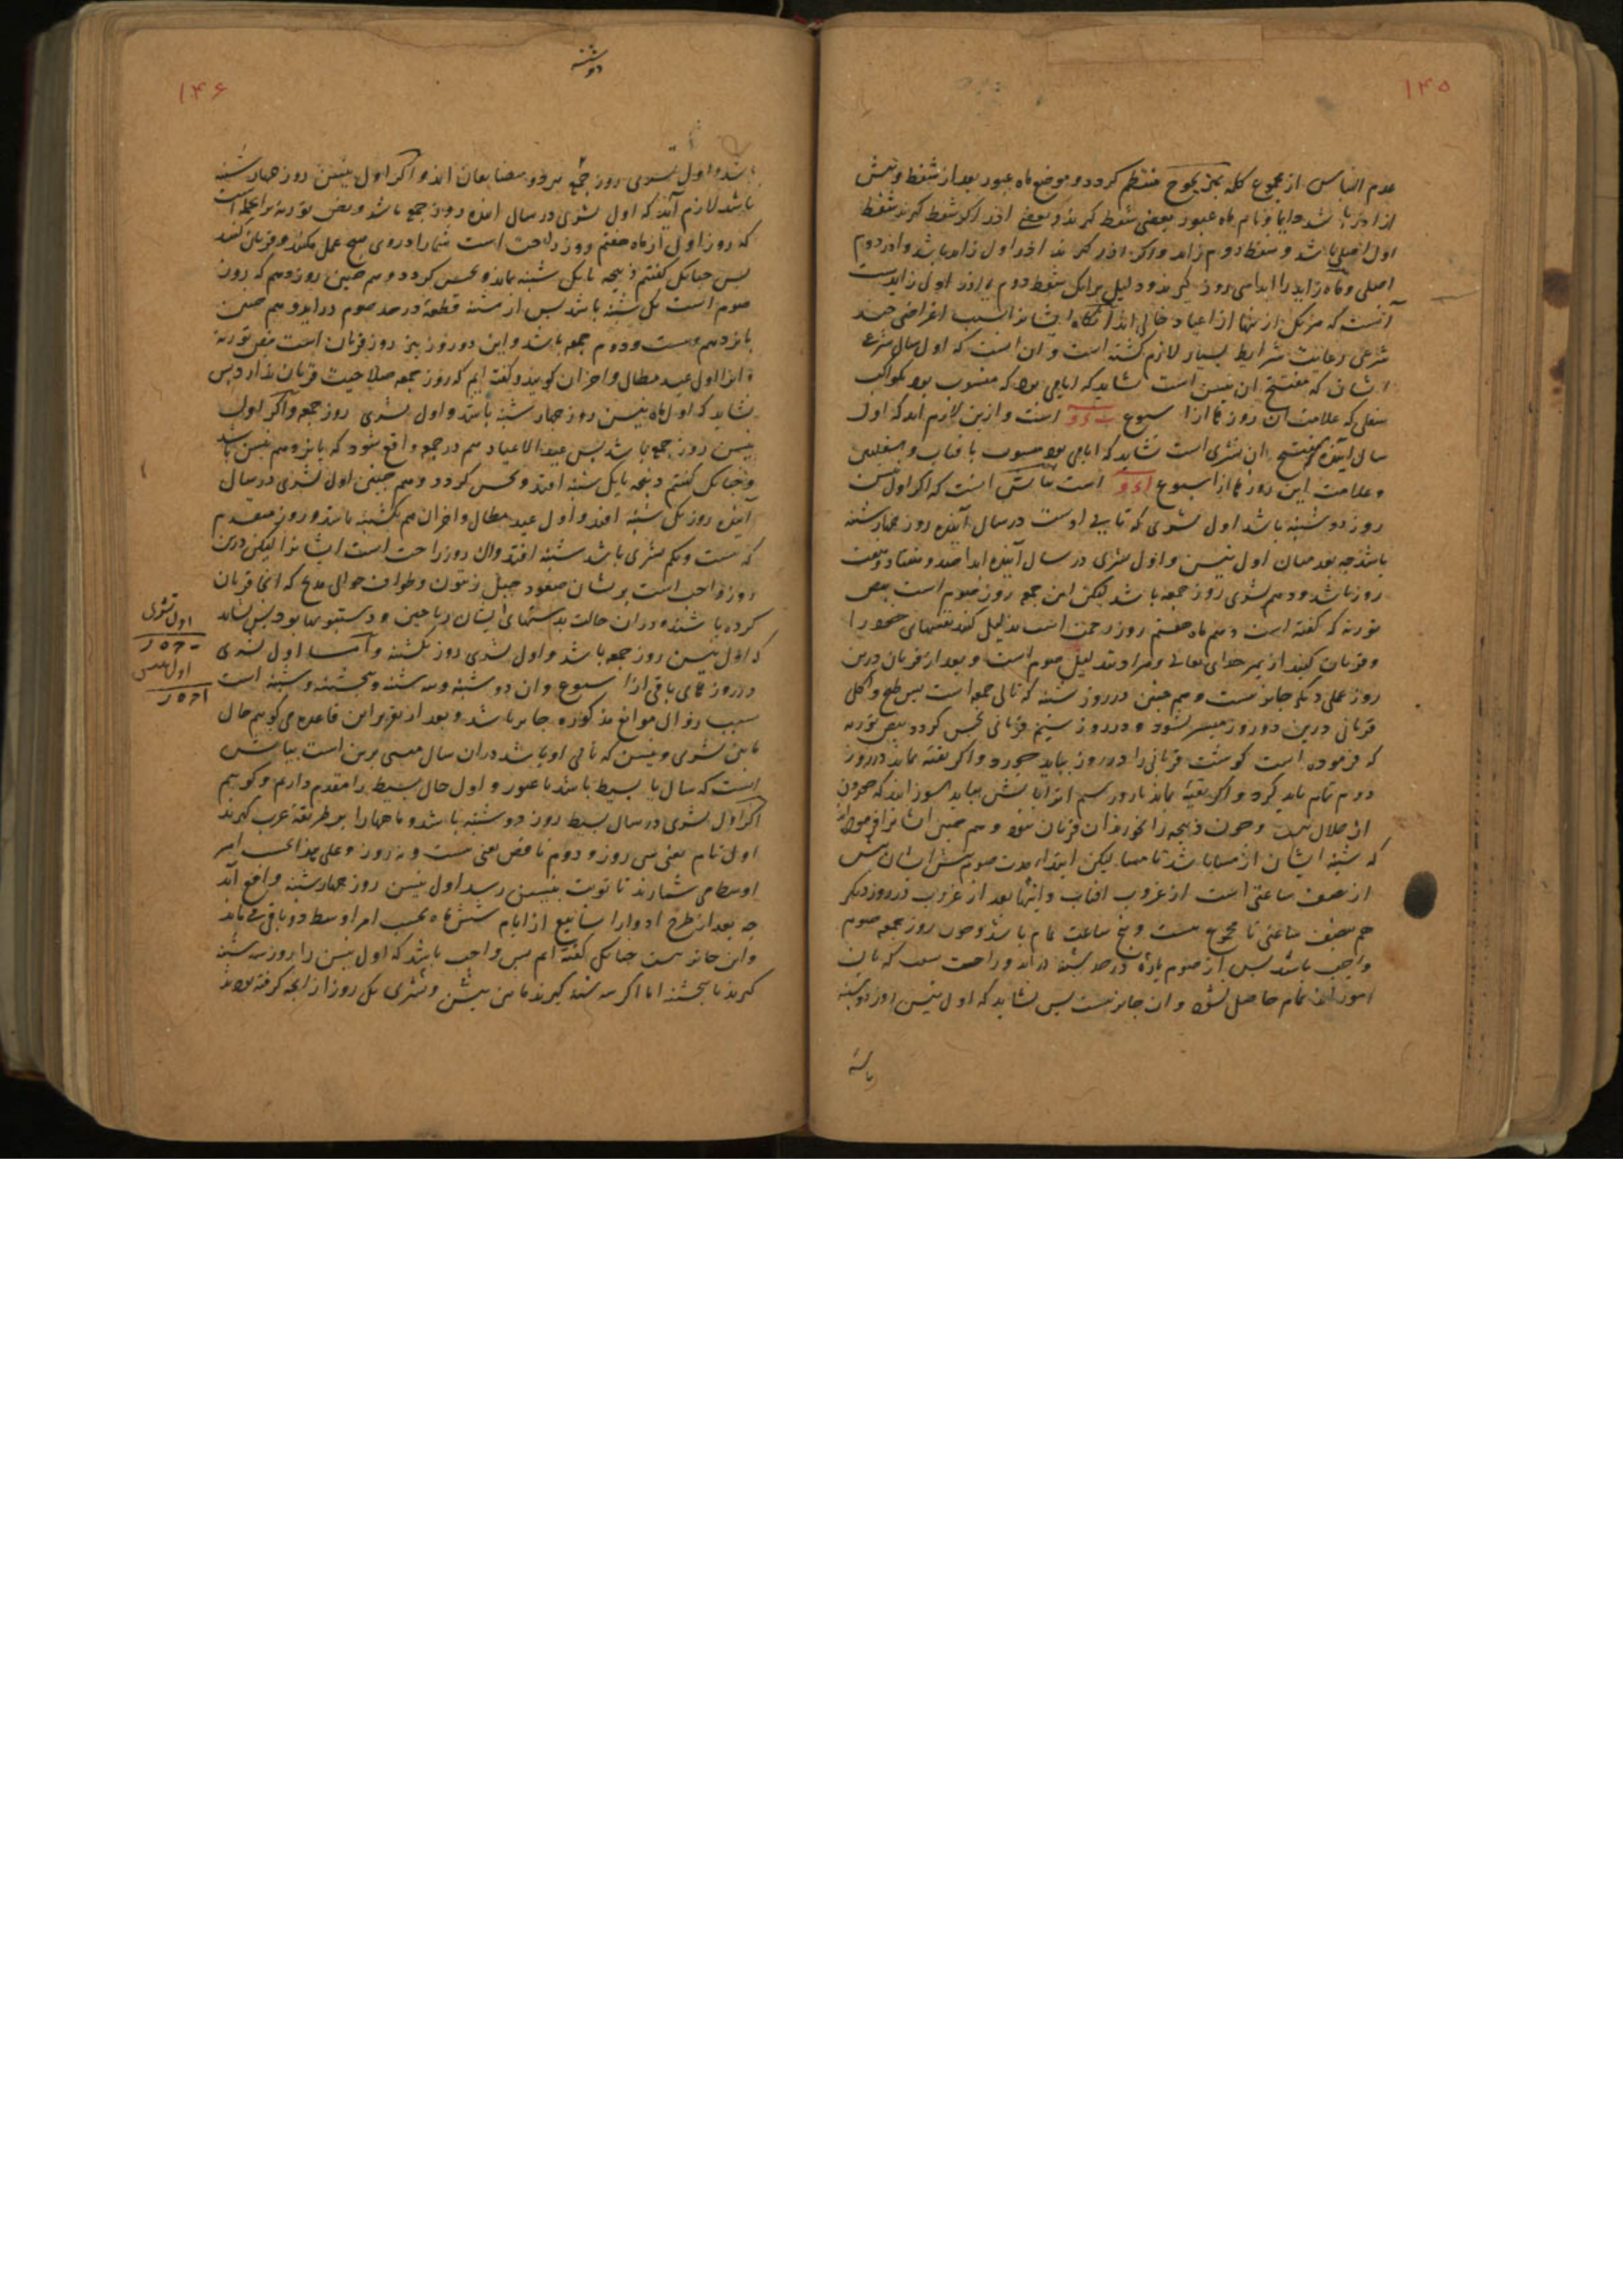 ۱۴۵
عدم التباس از مجموع کله بهزیجوح منتظم کردد و موضع ماه عبور بعد از شفط و پیش
از اذر باشد دایما و نام ماه عبور بعضی شفط کیرند و بعضی اذر اکر شفط کیرند شفط
اول اصلی باشد و شفط دوم زاید و اکر اذر کیرند اذر اول زاید باشد و اذر دوم
اصلی و ماه زاید را ابدا سی روز کیرند و دلیل برانک شفط دوم یا اذر اول زایدست
آنست که هریک از ینها از اعیاد خالی اند آنکاه ایشانرا بسبب اغراضی چند
شرعی رعایت شرایط بسیار لازم کشته است و آن است که اول سال شرع
ایشان که مفتتح آن نیسن است نشاید که ایامی بود که منسوب بود بکواکب
سفلی که علامت آن روزها از اسبوع ب د و است و ازین لازم اید که اول
سال آینده که مفتتح آن تشری است نشاید که ایامی بود منسوب بافتاب و سفلیین
و علامت این روزها از اسبوع ا د و است بیانش آنست که اکر اول نیسن
روز دوشنبه باشد اول تشری که تالی اوست در سال آینده روز چهارشنبه
باشد چه بعد میان اول نیسن و اول تشری در سال آینده ابدا صد و هفتاد و هفت
روز باشد و دهم تشری روز جمعه باشد لیکن این جمعه روز صوم است بنص
تورته که کفته است دهم ماه هفتم روز رحمت است تذلیل کنید نفسهای خود را
و قربان کنید از بهر خدای تعالی و مراد بتذلیل صوم است و بعد از قربان درین
روز عملی دیکر جایز نیست و هم چنین در روز شنبه که تالی جمعه است پس طبخ و اکل
قربانی درین دو روز میسر نشود و در روز سیم قربانی نجس کردد بنص تورته
که فرموده است کوشت قربانی را در روز بباید خورد و اکر بقیه بماند در روز
دوم تمام باید کرد و اکر بقیه بماند تا روز سیم انرا باتش بباید سوزانید که خوردن
ان حلال نیست و چون ذبیحه را نخورند آن قربان نبود و هم چنین ایشانرا فرموده‌اند
که شنبه ایشان از مسا باشد تا مسا لیکن ابتداء مدت صوم شش ایشان پیش
از نصف ساعتی است از غروب افتاب و انتها بعد از غروب در روز دیکر
هم بنصف ساعتی تا مجموع بیست و پنج ساعت تمام باشد و چون روز جمعه صوم
واجب باشد پس از صوم پاره در حد شنبه دراید و راحت سبت که بان
امورند تمام حاصل نشود و ان جایز نیست پس نشاید که اول نیسن روز دوشنبه

۱۴۶
دوشنبه
باشد و اول تشری روز جمعه
باشد لازم آید که اول تشری در سال اینده روز جمعه باشد و نص تورته
که روز اول از ماه هفتم روز راحت است شما را در وی هیچ عمل مکنید و قربان کنید
پس چنانک کفتم ذبیحه تا یک شنبه بماند و نجس کردد و هم چنین روز دهم که روز
صوم است یک شنبه باشد پس از شنبه قطعه در حد صوم دراید و هم چنین
پانزدهم و بیست و دوم جمعه باشد و این دو روز نیز روز قربان است بنص تورته
و انرا اول عید مطال و اخر ان کویند و کفته ایم که روز جمعه صلاحیت قربان ندارد پس
نشاید که اول ماه نیسن روز چهارشنبه باشد و اول تشری روز جمعه و اکر اول
نیسن روز جمعه باشد پس عید الاعیاد هم در جمعه واقع شود که پانزدهم نیسن باشد
و چنانک کفتم ذبیحه تا یک شنبه افتد و نجس کردد و هم چنین اول تشری در سال
آینده روز یک شنبه افتد و اول عید مطال و اخر ان هم یکشنبه باشد و روز مقدم
که بیست و یکم تشری باشد شنبه افتد وان روز راحت است ایشانرا لیکن درین
روز واجب است برشان صعود جبل زیتون و طواف حوالی مذبح که انجا قربان
کرده باشند و در ان حالت بدستهای ایشان ریاحین و دستنبویها بود پس نشاید
که اول نیسن روز جمعه باشد و اول تشری روز یکشنبه و اما اول تشری
در روزهای باقی از اسبوع وان دوشنبه و سه شنبه و پنجشنبه و شنبه است
بسبب زوال موانع مذکوره جایز باشد و بعد از تقریر این قاعده می کویم حال
مابین تشری و نیسن که تالی او باشد در ان سال مبنی برین است بیانش
انست که سال یا بسیط باشد یا عبور و اول حال بسیط را مقدم داریم و کوییم
اکر اول تشری در سال بسیط روز دوشنبه باشد و ماهها را بر طریقه عرب کیرند
اول تام یعنی سی روز و دوم ناقص یعنی بیست و نه روز و علی هذا بحسب امر
اوسط می شمارند تا نوبت بنیسن رسد اول نیسن روز چهارشنبه واقع آید
چه بعد از طرح ادوار اسابیع از ایام شش ماه بحسب امر اوسط دو باقی می ماند
و این جایز نیست چنانک کفته ایم پس واجب باشد که اول نیسن را روز سه شنبه
کیرند یا پنجشنبه اما اکر سه شنبه کیرند مابین نیسن و تشری یک روز از انچه کرفته بودند
اول تشری
ب ج ه ز
اول نیسن
ا ج ه ز